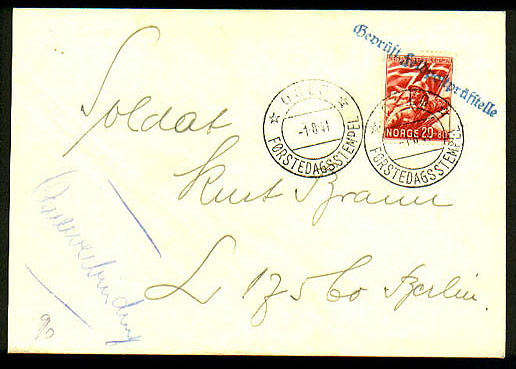 Geprüft Feldpostprüfstelle
NORGE 20+80
OSLO
-1.8.41
FØRSTEDAGSSTEMPEL
OSLO
-1.8.41
FØRSTEDAGSSTEMPEL
Soldat
Kurt Braun
L 17560 Berlin.
90